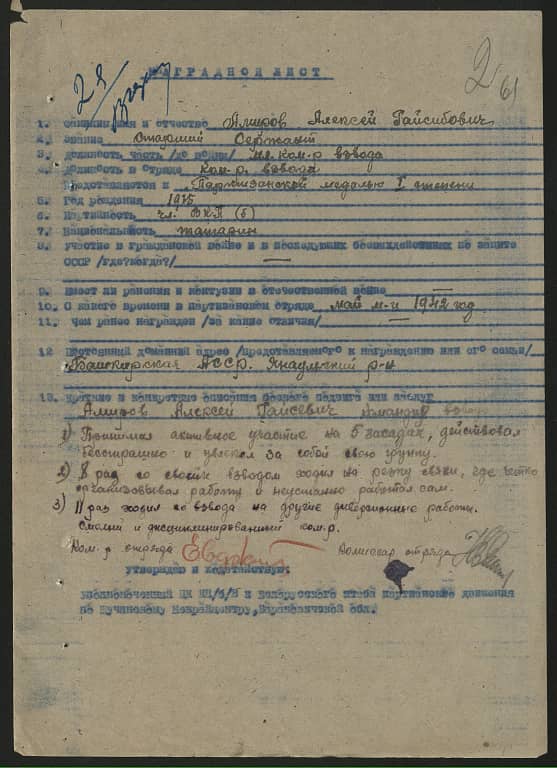 НАГРАДНОЙ ЛИСТ
2
61
1. Фамилия имя и отчество Амиров Алексей Гайсибович
2. Звание Старший Сержант
3. Должность часть /до войны/ мл. ком-р взвода
4. Должность в отряде ком-р. взвода
Представляется к Партизанской медалью I степени
5. Год рождения 1915
6. Партийность чл. ВКП (б)
7. Национальность татарин
8. Участие в гражданской войне и в последующих боевых действиях по защите
СССР /где? когда?/ —
9. Имеет ли ранения и контузии в отечественной войне
10. С какого времени в партизанском отряде май м-ц 1942 год
11. Чем ранее награжден /за какие отличия/ —
12 Постоянный домашний адрес /представляемого к награждению или его семьи/
Башкирская АССР. Янаульский р-н
13. Краткие и конкретные описания боевого подвига или заслуг
Амиров Алексей Гайсевич командир
1) Принимал активное участие на 5 засадах, действовал
бесстрашно и увлекал за собой свою группу.
2) 8 раз со своим взводом ходил на резку связи, где четко
организовывал работу и неустанно работал сам.
3) 11 раз ходил со взвода на другие диверсионные работы.
Смелый и дисциплинированный ком-р.
Ком-р отряда Комиссар отряда
Утверждаю и ходатайствую:
Уполномоченный ЦК КП/б/Б и Белорусского штаба партизанского движения
по Мирскому Межрайцентру, Барановичской обл.